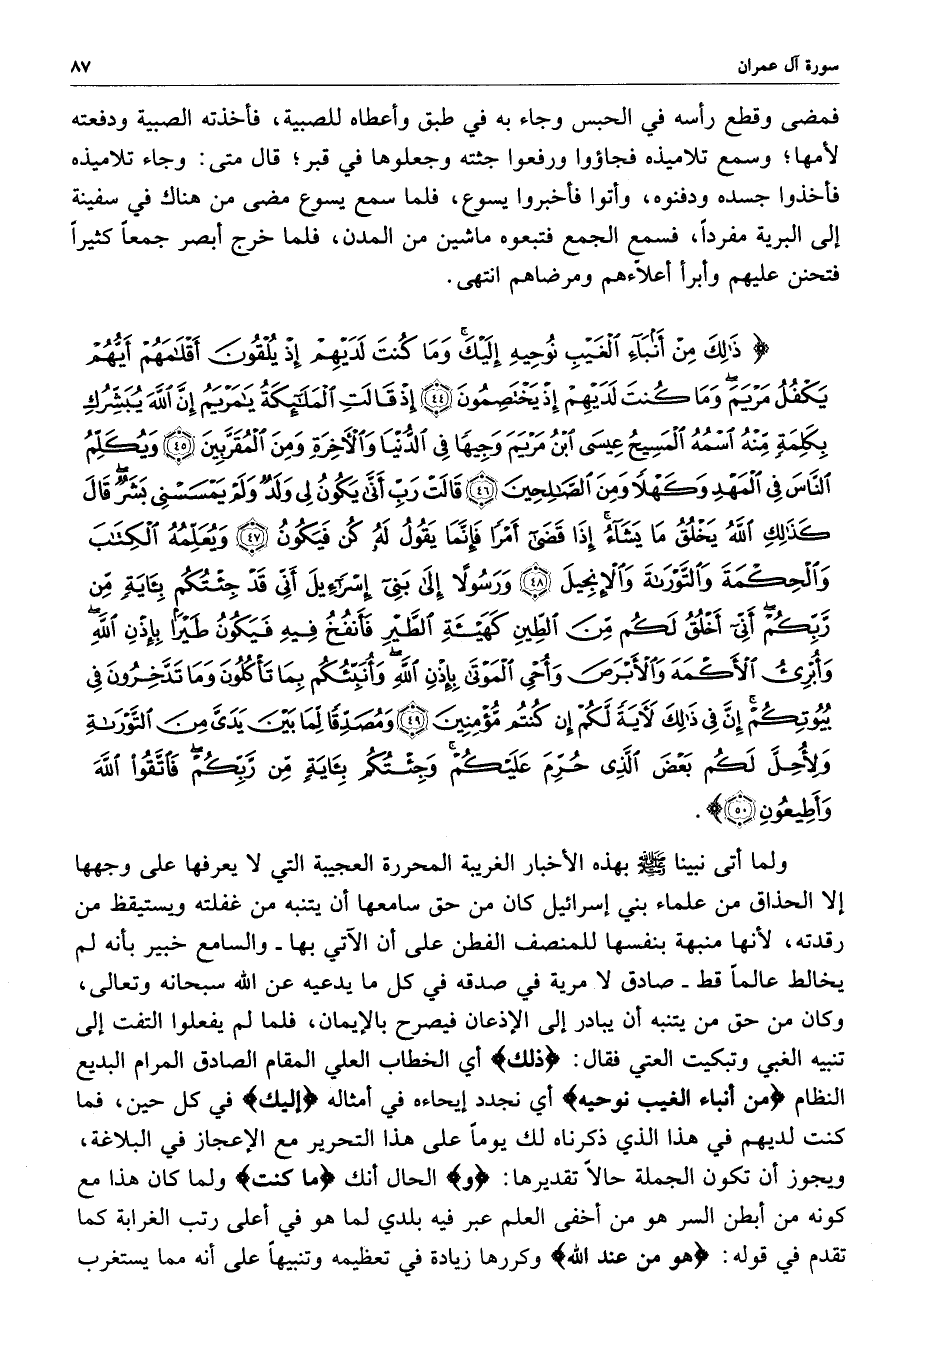 سورة آل عمران ٨٧
فمضى وقطع رأسه في الحبس وجاء به في طبق وأعطاه للصبية، فأخذته الصبية ودفعته
لأمها؛ وسمع تلاميذه فجاؤوا ورفعوا جثته وجعلوها في قبر؛ قال متى: وجاء تلاميذه
فأخذوا جسده ودفنوه، وأتوا فأخبروا يسوع، فلما سمع يسوع مضى من هناك في سفينة
إلى البرية مفرداً، فسمع الجمع فتبعوه ماشين من المدن، فلما خرج أبصر جمعاً كثيراً
فتحنن عليهم وأبرأ أعلاّءهم ومرضاهم انتهى.
﴿ ذَٰلِكَ مِنْ أَنۢبَآءِ ٱلْغَيْبِ نُوحِيهِ إِلَيْكَ ۚ وَمَا كُنتَ لَدَيْهِمْ إِذْ يُلْقُونَ أَقْلَٰمَهُمْ أَيُّهُمْ
يَكْفُلُ مَرْيَمَ ۖ وَمَا كُنتَ لَدَيْهِمْ إِذْ يَخْتَصِمُونَ ٤٤ إِذْ قَالَتِ ٱلْمَلَٰٓئِكَةُ يَٰمَرْيَمُ إِنَّ ٱللَّهَ يُبَشِّرُكِ
بِكَلِمَةٍ مِّنْهُ ٱسْمُهُ ٱلْمَسِيحُ عِيسَى ٱبْنُ مَرْيَمَ وَجِيهًا فِى ٱلدُّنْيَا وَٱلْءَاخِرَةِ وَمِنَ ٱلْمُقَرَّبِينَ ٤٥ وَيُكَلِّمُ
ٱلنَّاسَ فِى ٱلْمَهْدِ وَكَهْلًا وَمِنَ ٱلصَّٰلِحِينَ ٤٦ قَالَتْ رَبِّ أَنَّىٰ يَكُونُ لِى وَلَدٌ وَلَمْ يَمْسَسْنِى بَشَرٌ ۖ قَالَ
كَذَٰلِكِ ٱللَّهُ يَخْلُقُ مَا يَشَآءُ ۚ إِذَا قَضَىٰٓ أَمْرًا فَإِنَّمَا يَقُولُ لَهُۥ كُن فَيَكُونُ ٤٧ وَيُعَلِّمُهُ ٱلْكِتَٰبَ
وَٱلْحِكْمَةَ وَٱلتَّوْرَىٰةَ وَٱلْإِنجِيلَ ٤٨ وَرَسُولًا إِلَىٰ بَنِىٓ إِسْرَٰٓءِيلَ أَنِّى قَدْ جِئْتُكُم بِـَٔايَةٍ مِّن
رَّبِّكُمْ ۖ أَنِّىٓ أَخْلُقُ لَكُم مِّنَ ٱلطِّينِ كَهَيْـَٔةِ ٱلطَّيْرِ فَأَنفُخُ فِيهِ فَيَكُونُ طَيْرًۢا بِإِذْنِ ٱللَّهِ ۖ
وَأُبْرِئُ ٱلْأَكْمَهَ وَٱلْأَبْرَصَ وَأُحْىِ ٱلْمَوْتَىٰ بِإِذْنِ ٱللَّهِ ۖ وَأُنَبِّئُكُم بِمَا تَأْكُلُونَ وَمَا تَدَّخِرُونَ فِى
بُيُوتِكُمْ ۚ إِنَّ فِى ذَٰلِكَ لَءَايَةً لَّكُمْ إِن كُنتُم مُّؤْمِنِينَ ٤٩ وَمُصَدِّقًا لِّمَا بَيْنَ يَدَىَّ مِنَ ٱلتَّوْرَىٰةِ
وَلِأُحِلَّ لَكُم بَعْضَ ٱلَّذِى حُرِّمَ عَلَيْكُمْ ۚ وَجِئْتُكُم بِـَٔايَةٍ مِّن رَّبِّكُمْ ۖ فَٱتَّقُوا۟ ٱللَّهَ
وَأَطِيعُونِ ٥٠ ﴾.
ولما أتى نبينا ﷺ بهذه الأخبار الغريبة المحررة العجيبة التي لا يعرفها على وجهها
إلا الحذاق من علماء بني إسرائيل كان من حق سامعها أن يتنبه من غفلته ويستيقظ من
رقدته، لأنها منبهة بنفسها للمنصف الفطن على أن الآتي بها - والسامع خبير بأنه لم
يخالط عالماً قط - صادق لا مرية في صدقه في كل ما يدعيه عن الله سبحانه وتعالى،
وكان من حق من يتنبه أن يبادر إلى الإذعان فيصرح بالإيمان، فلما لم يفعلوا التفت إلى
تنبيه الغبي وتبكيت العتي فقال: ﴿ذلك﴾ أي الخطاب العلي المقام الصادق المرام البديع
النظام ﴿من أنباء الغيب نوحيه﴾ أي نجدد إيحاءه في أمثاله ﴿إليك﴾ في كل حين، فما
كنت لديهم في هذا الذي ذكرناه لك يوماً على هذا التحرير مع الإعجاز في البلاغة،
ويجوز أن تكون الجملة حالاً تقديرها: ﴿و﴾ الحال أنك ﴿ما كنت﴾ ولما كان هذا مع
كونه من أبطن السر هو من أخفى العلم عبر فيه بلدي لما هو في أعلى رتب الغرابة كما
تقدم في قوله: ﴿هو من عند الله﴾ وكررها زيادة في تعظيمه وتنبيهاً على أنه مما يستغرب